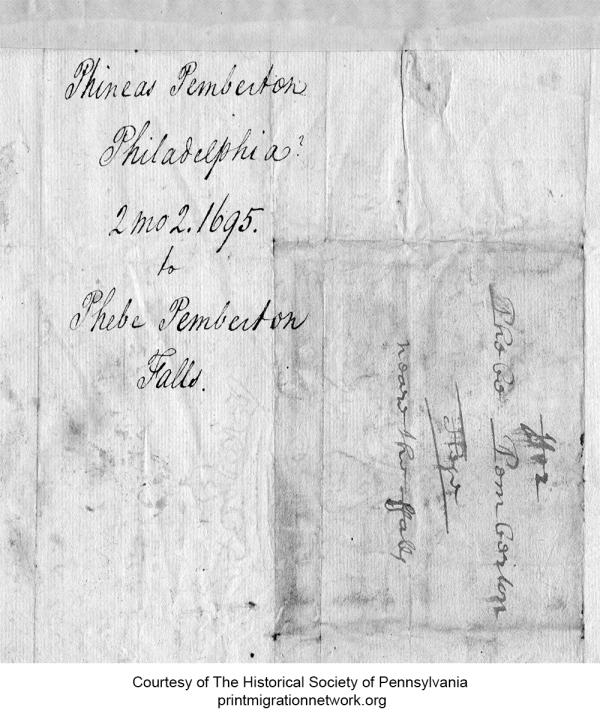 Phineas Pemberton
Philadelphia?
2 mo 2. 1695.
to
Phebe Pemberton
Falls.
ffor
Phebe Pemberton
These
neare the ffalls
Courtesy of The Historical Society of Pennsylvania
printmigrationnetwork.org